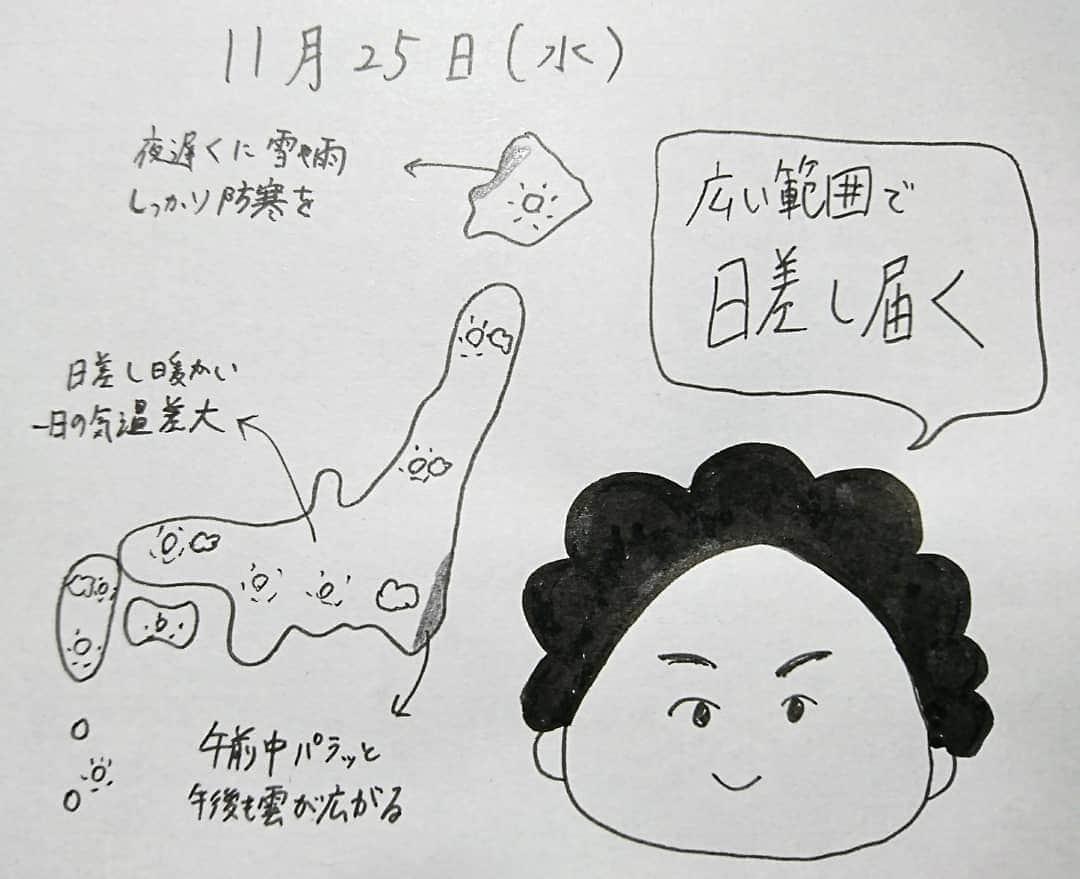 11月25日(水)
夜遅くに雪や雨
しっかり防寒を
広い範囲で
日差し届く
日差し暖かい
一日の気温差大
午前中パラッと
午後も雲が広がる